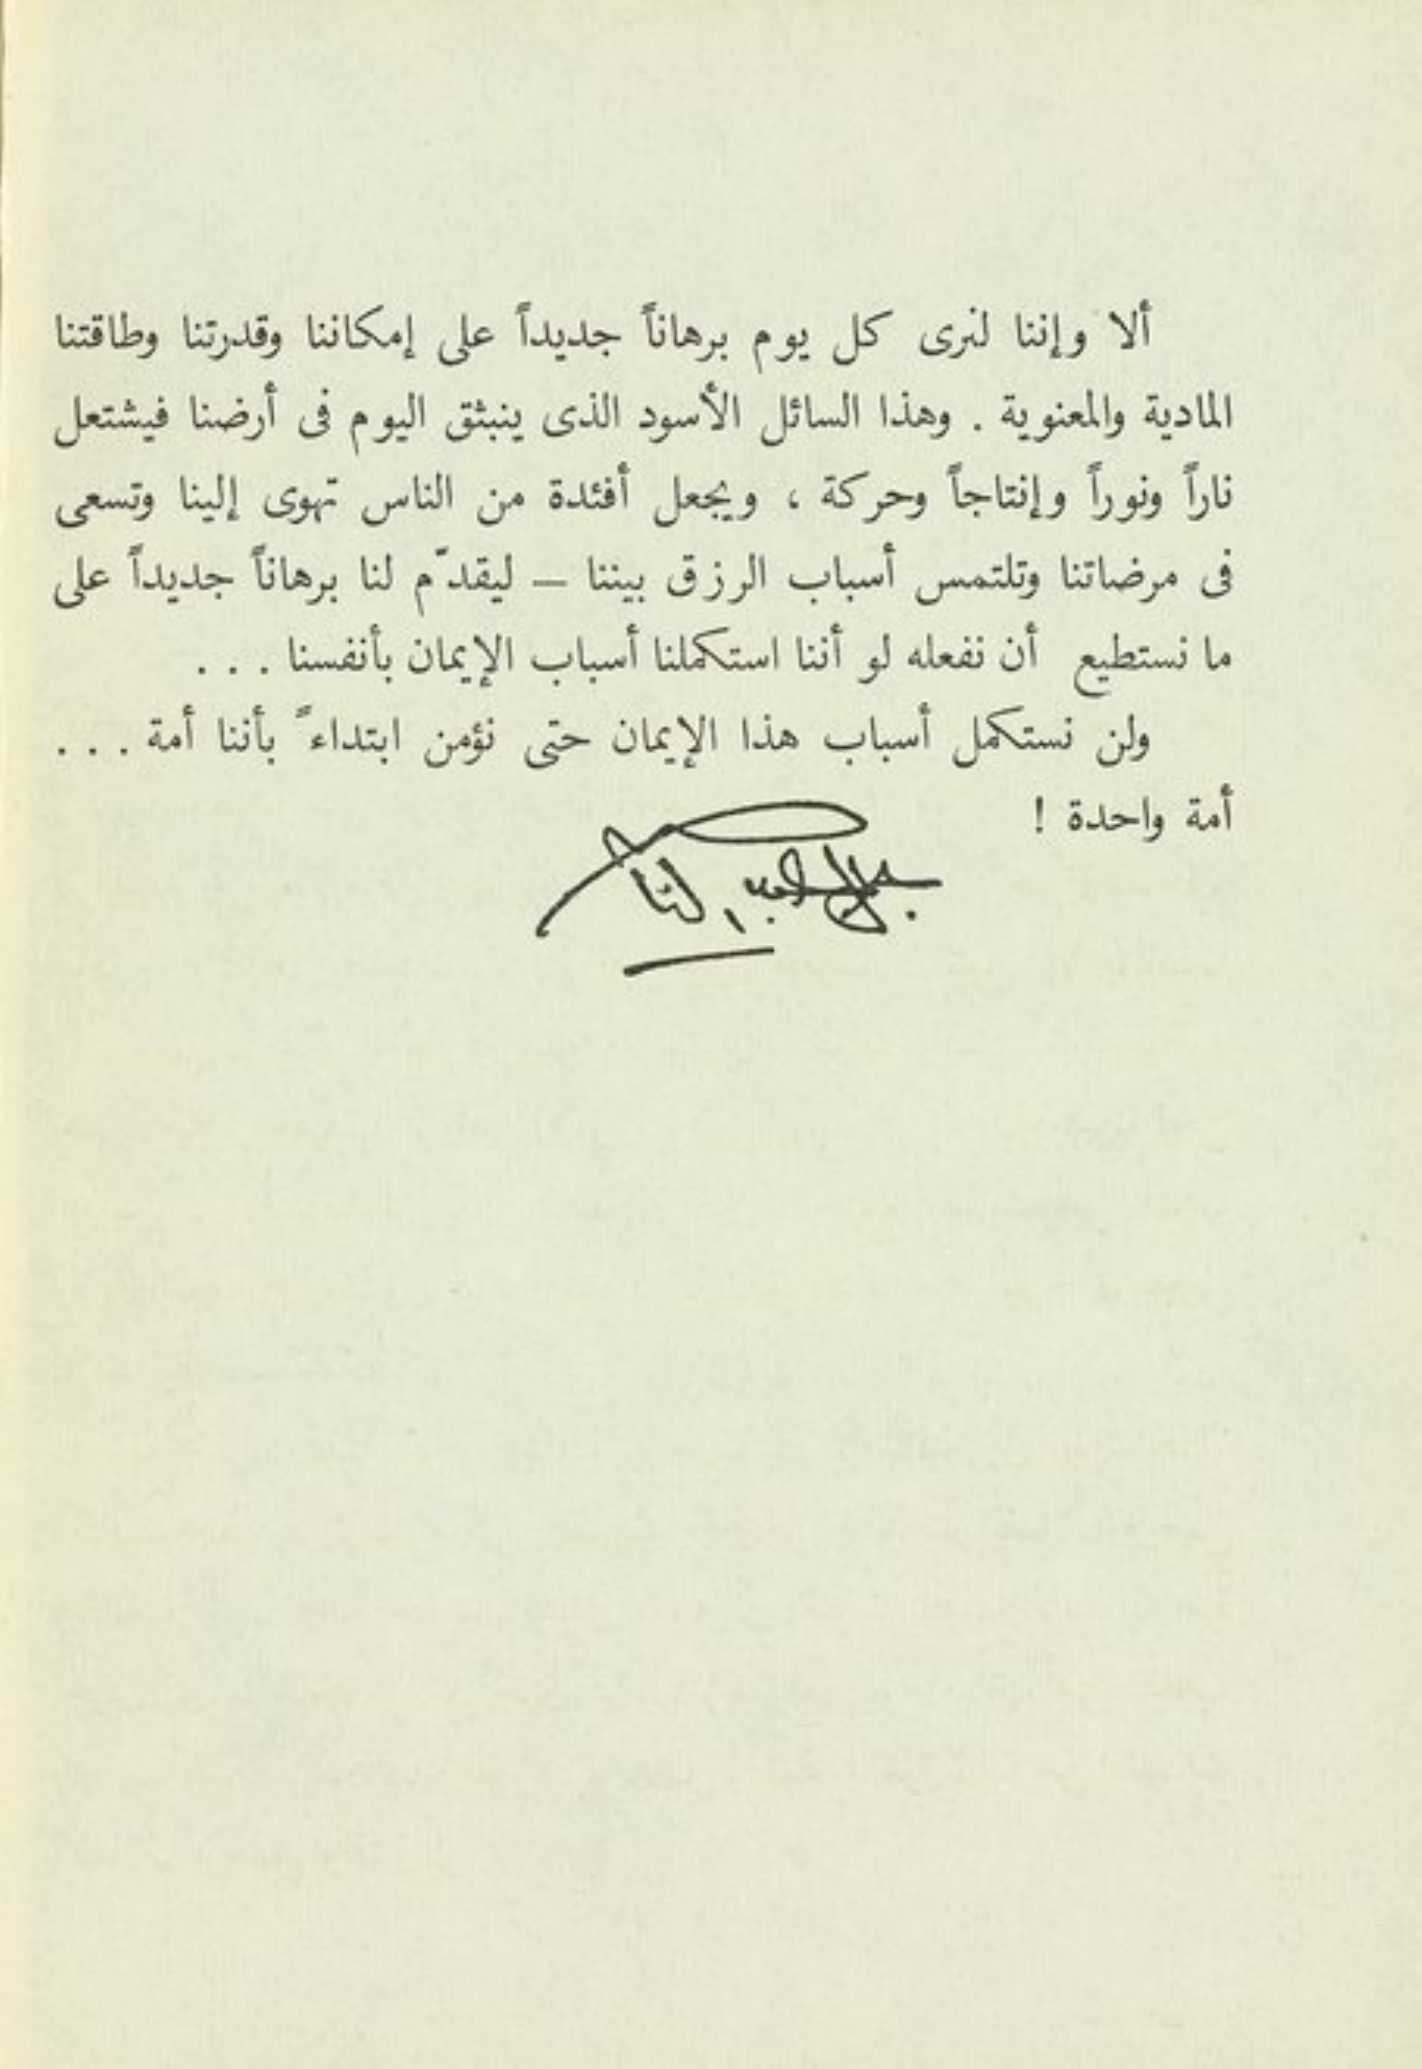 ألا وإننا لنرى كل يوم برهاناً جديداً على إمكاننا وقدرتنا وطاقتنا
المادية والمعنوية . وهذا السائل الأسود الذى ينبثق اليوم فى أرضنا فيشتعل
ناراً ونوراً وإنتاجاً وحركة ، ويجعل أفئدة من الناس تهوى إلينا وتسعى
فى مرضاتنا وتلتمس أسباب الرزق بيننا – ليقدّم لنا برهاناً جديداً على
ما نستطيع أن نفعله لو أننا استكملنا أسباب الإيمان بأنفسنا . . .
ولن نستكمل أسباب هذا الإيمان حتى نؤمن ابتداءً بأننا أمة . . .
أمة واحدة !